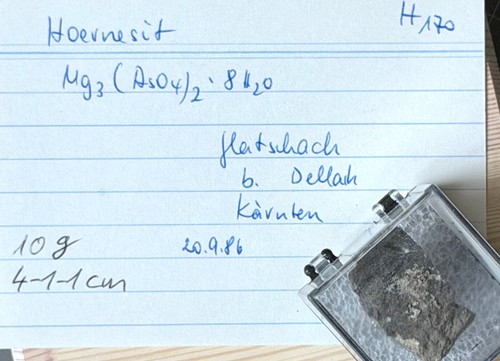 Hoernesit
H170
Mg₃(AsO₄)₂·8H₂O
flatschach
b. Dellach
Kärnten
20.9.86
10 g
4-1-1 cm